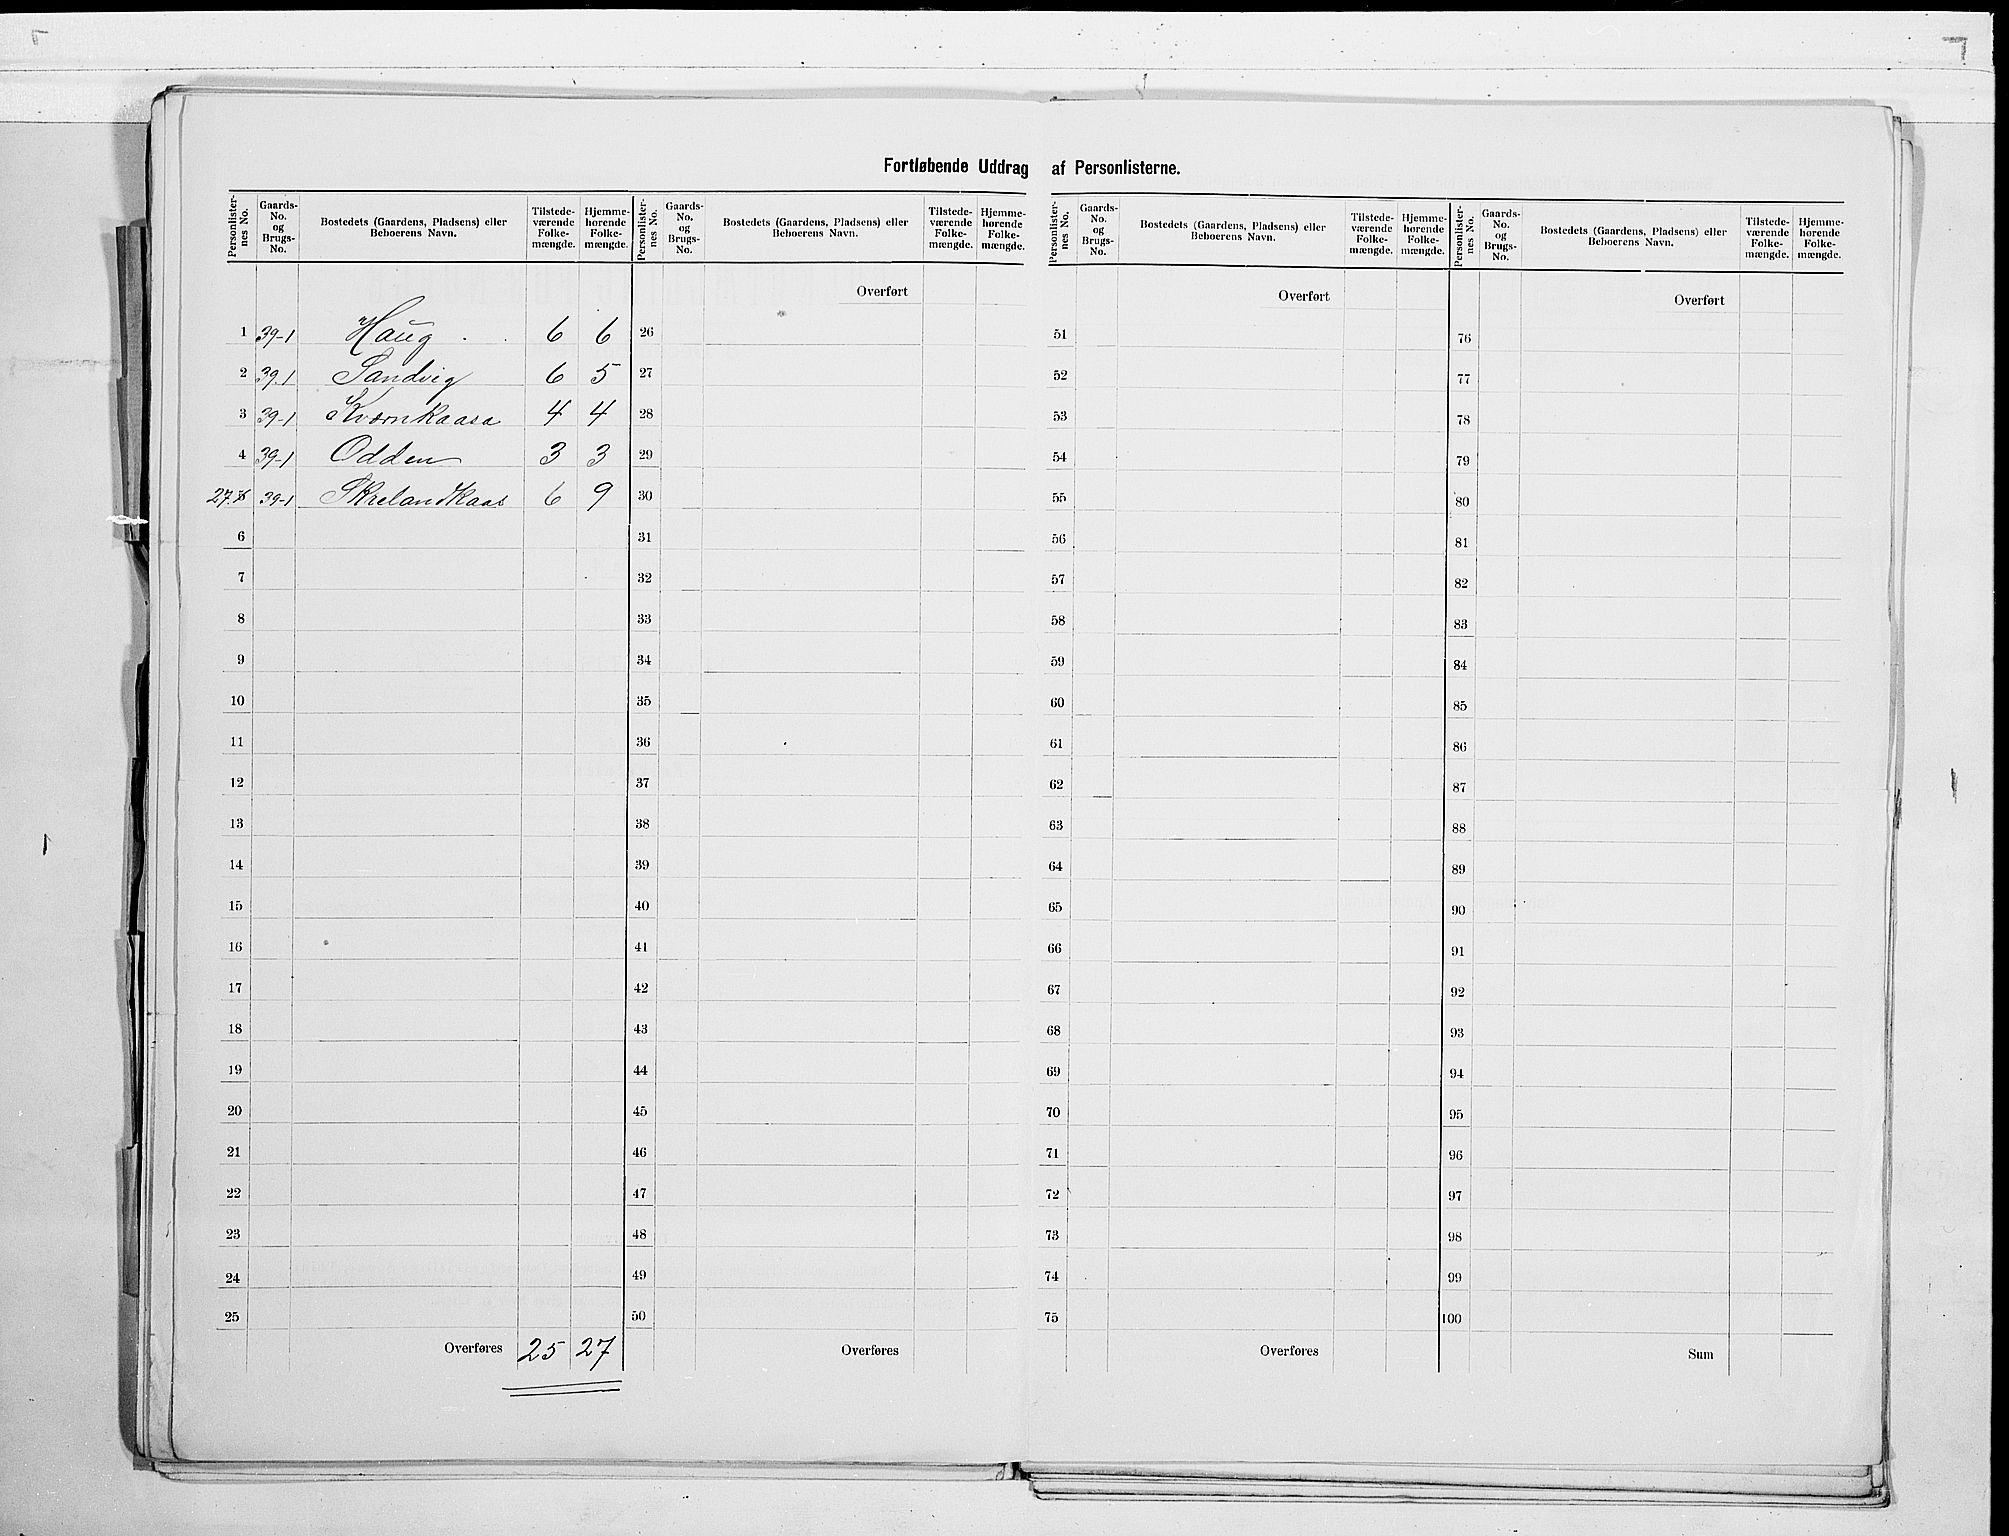 Fortløbende Uddrag af Personlisterne.
Personlister-nes No. | Gaards-No. og Brugs-No. | Bostedets (Gaardens, Pladsens) eller Beboerens Navn. | Tilstede-værende Folke-mængde. | Hjemme-hørende Folke-mængde.
1 39-1 Haug 6 6
2 39.1 Sandvig 6 5
3 39-1 Kværnkaasa 4 4
4 39-1 Odden 3 3
27. 39-1 Skrelandkaas 6 9
6
7
8
9
10
11
12
13
14
15
16
17
18
19
20
21
22
23
24
25
Overføres 25 27
Personlister-nes No. | Gaards-No. og Brugs-No. | Bostedets (Gaardens, Pladsens) eller Beboerens Navn. | Tilstede-værende Folke-mængde. | Hjemme-hørende Folke-mængde.
Overført
26
27
28
29
30
31
32
33
34
35
36
37
38
39
40
41
42
43
44
45
46
47
48
49
50
Overføres
Personlister-nes No. | Gaards-No. og Brugs-No. | Bostedets (Gaardens, Pladsens) eller Beboerens Navn. | Tilstede-værende Folke-mængde. | Hjemme-hørende Folke-mængde.
Overført
51
52
53
54
55
56
57
58
59
60
61
62
63
64
65
66
67
68
69
70
71
72
73
74
75
Overføres
Personlister-nes No. | Gaards-No. og Brugs-No. | Bostedets (Gaardens, Pladsens) eller Beboerens Navn. | Tilstede-værende Folke-mængde. | Hjemme-hørende Folke-mængde.
Overført
76
77
78
79
80
81
82
83
84
85
86
87
88
89
90
91
92
93
94
95
96
97
98
99
100
Sum